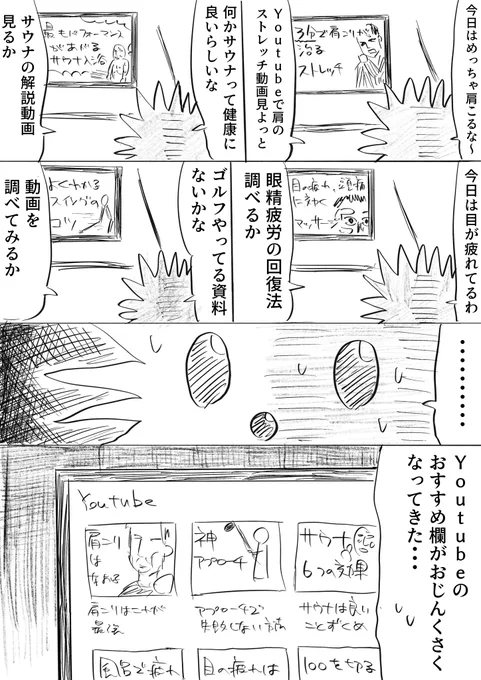 今日はめっちゃ肩こるな~
Youtubeで肩の
ストレッチ動画見よっと
3分で肩こりが
治る
ストレッチ
何かサウナって健康に
良いらしいな
サウナの解説動画
見るか
最もパフォーマンス
があがる
サウナ入浴
今日は目が疲れてるわ
眼精疲労の回復法
調べるか
目の疲れ、頭痛
に効く
マッサージ
ゴルフやってる資料
ないかな
動画を
調べてみるか
よくわかる
スイングの
コツ
・・・・・・・・・・
Youtubeの
おすすめ欄がおじんくさく
なってきた・・・
Youtube
肩こりは
なおる
肩こりはコレが
最強
神
アプローチ
アプローチで
失敗しない方法
サウナ
6つの効果
サウナは良い
ことずくめ
風呂で疲れ
目の疲れは
100を切る